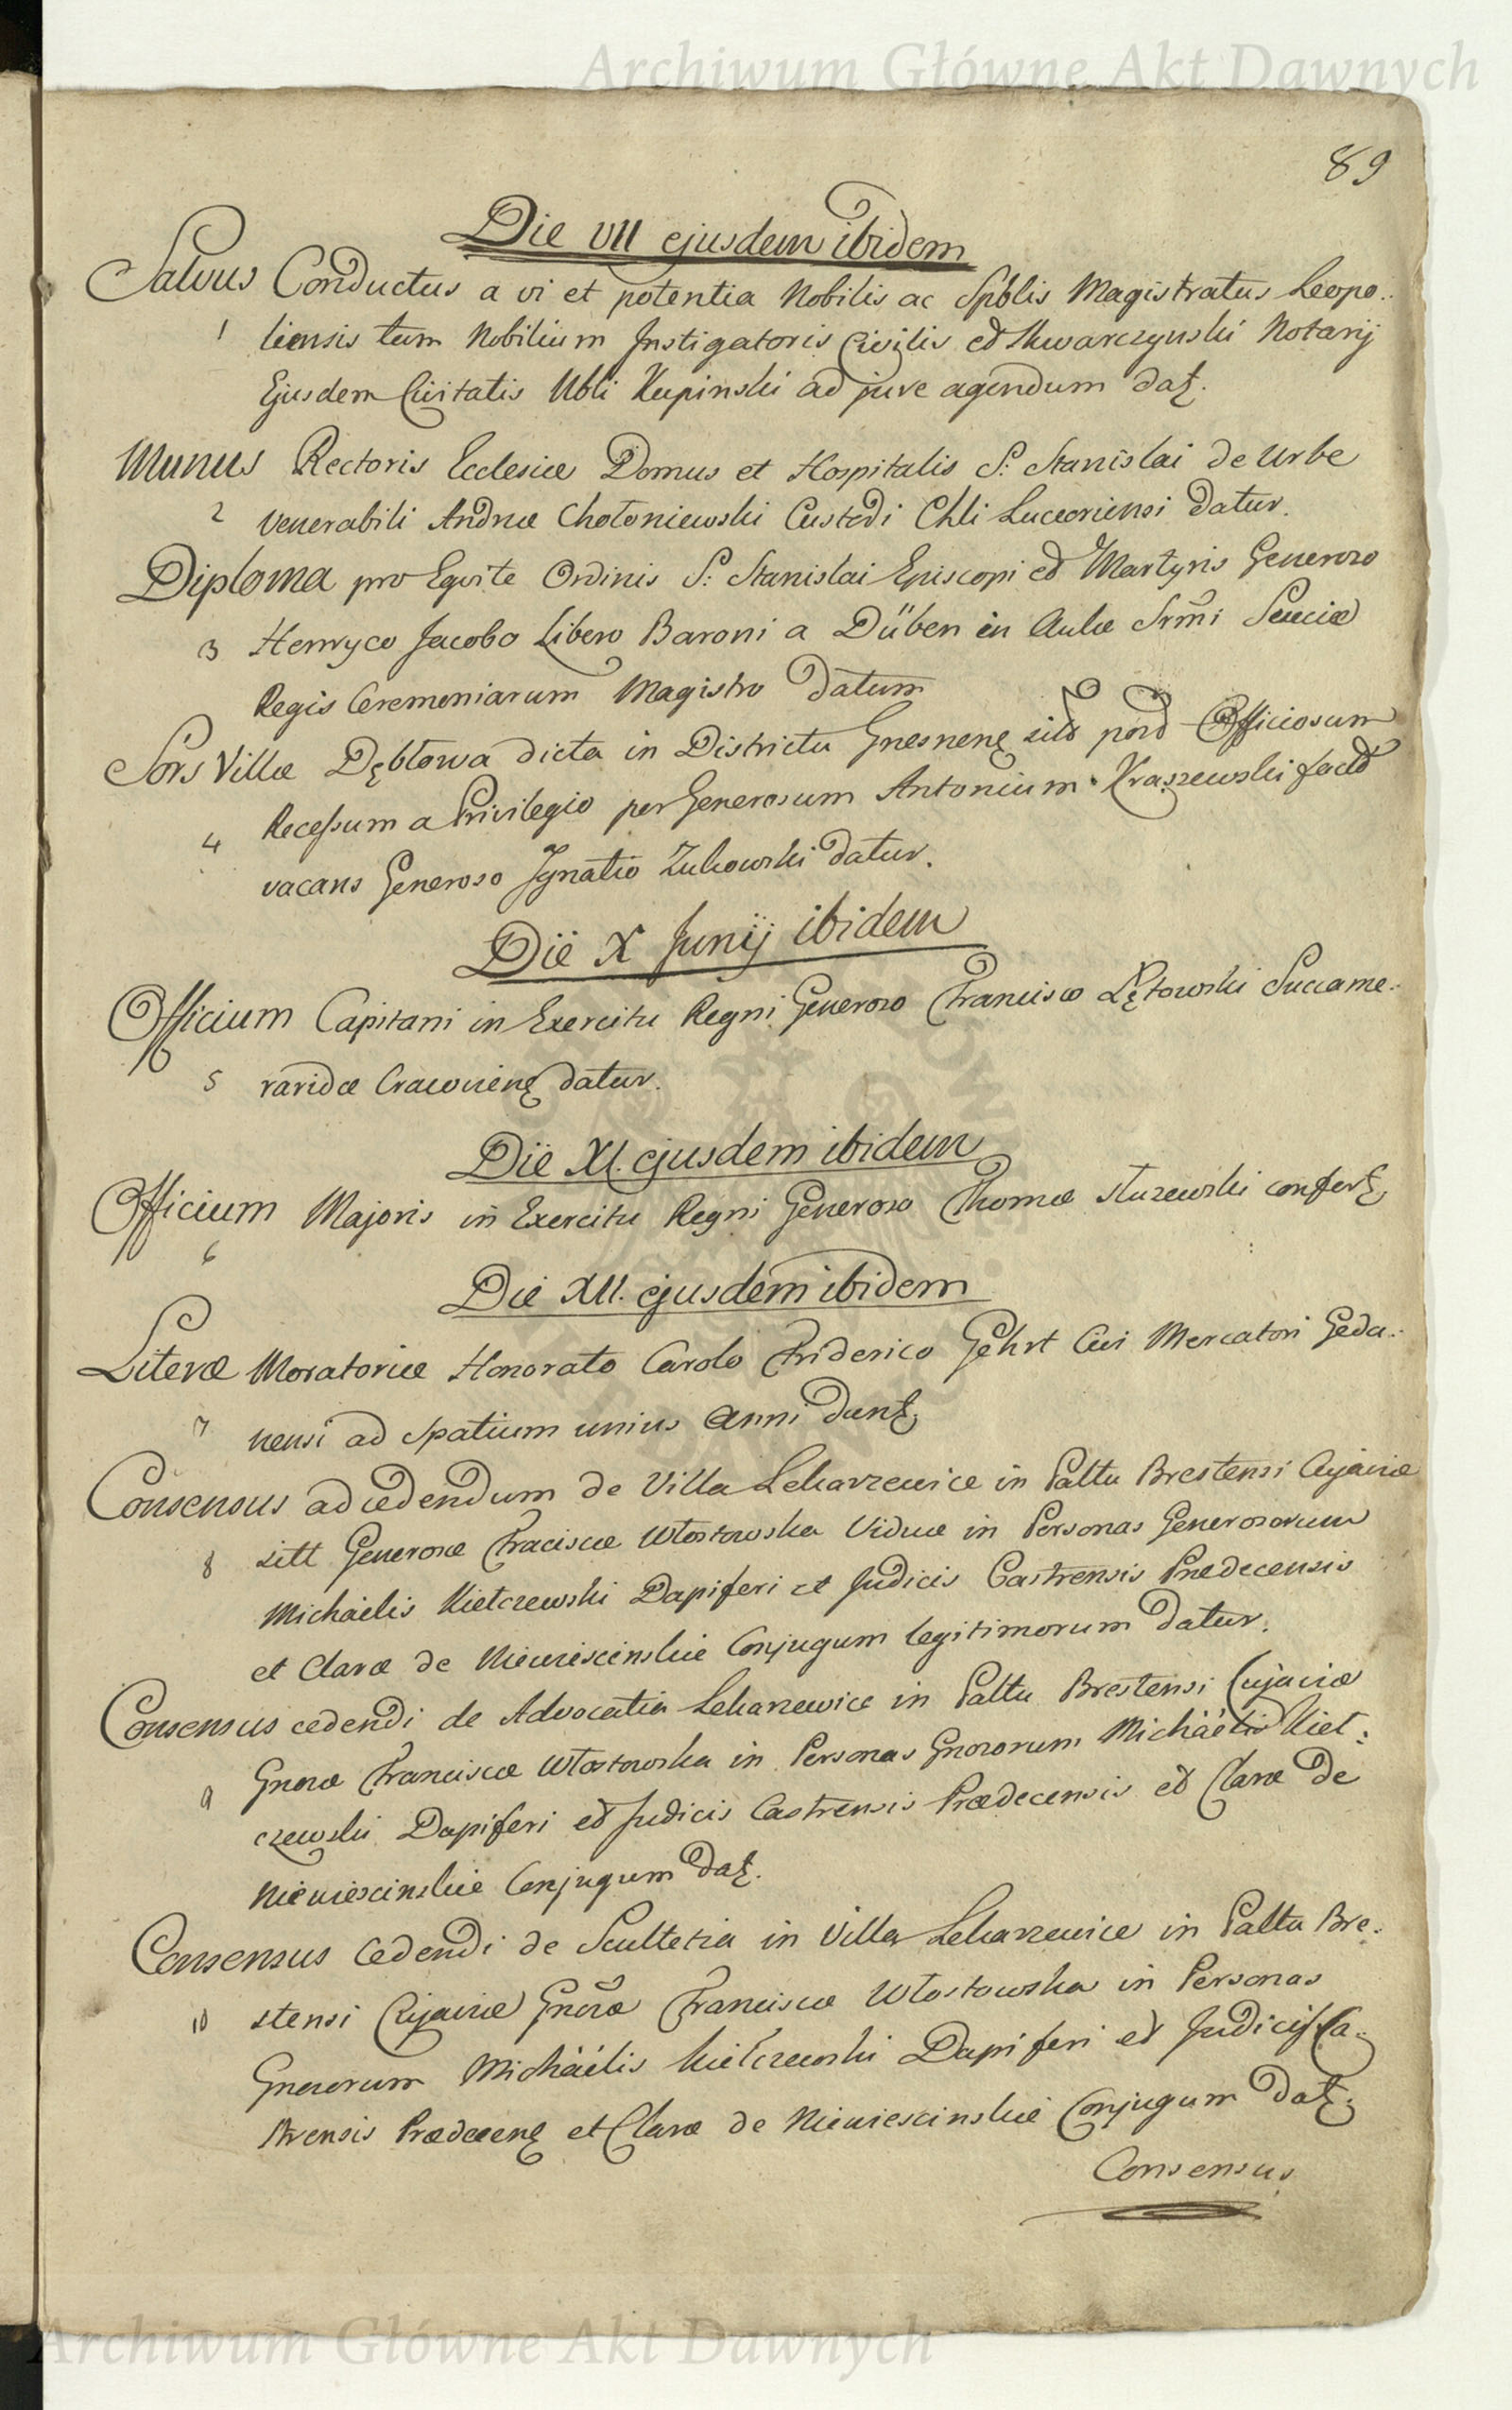 Archiwum Główne Akt Dawnych
89
Die VII ejusdem ibidem
Salvus Conductus a vi et potentia Nobilis ac Spblis Magistratus Leopo..
1 liensis tum Nobilium Instigatoris Civilis et Skwarczynski Notarij
Ejusdem Civitatis Nbli Kupinski ad jure agendum datȝ.
Munus Rectoris Ecclesiæ Domus et Hospitalis S: Stanislai de Urbe
2 venerabili Andreæ Chołoniewski Custodi Chli Luceoriensi datur.
Diploma pro Equite Ordinis S: Stanislai Episcopi et Martyris Generoso
3 Henryco Jacobo Libero Baroni a Düben in Aula Srmi Sueciæ
Regis Ceremoniarum Magistro datum
Sors Villæ Dębłowa dicta in Districtu Gnesnenȝ sita post Officiosum
4 Recessum a Privilegio per Generosum Antonium Kraszewski factũ
vacans Generoso Ignatio Zukowski datur.
Die X Junij ibidem
Officium Capitani in Exercitu Regni Generoso Francisco Łętowski Succame..
5 raridæ Cracovienȝ datur.
Die XI. ejusdem ibidem
Officium Majoris in Exercitu Regni Generoso Thomæ Słuzewski confertȝ
6
Die XII. ejusdem ibidem
Literæ Moratoriæ Honorato Carolo Friderico Gehrt Civi Mercatori Geda..
7 nensi ad spatium unius anni dantȝ
Consensus ad cedendum de Villa Lekarzewice in Palttu Brestensi Cujaviæ
8 sitt Generosæ Fraciscæ Włostowska Viduæ in Personas Generosorum
Michaëlis Kiełczewski Dapiferi et Judicis Castrensis Prædecensis
et Claræ de Niemiescinskie Conjugum legitimorum datur.
Consensus cedendi de Advocatia Lekarzewice in Palttu Brestensi Cujaviæ
9 Gnosæ Franciscæ Włostowska in Personas Gnosorum Michäélis Kieł:
czewski Dapiferi et Judicis Castrensis Prædecensis et Claræ de
Niemiescinskie Conjugum datȝ.
Consensus cedendi de Scultetia in Villa Lekarzewice in Palttu Bre.
10 stensi Cujaviæ Gnosæ Franciscæ Włostowska in Personas
Gnosorum Michäélis Kiełczewski Dapiferi et Judicis Ca..
strensis Prædecenȝ et Claræ de Niemiescinskie Conjugum datȝ.
Consensus
Archiwum Główne Akt Dawnych